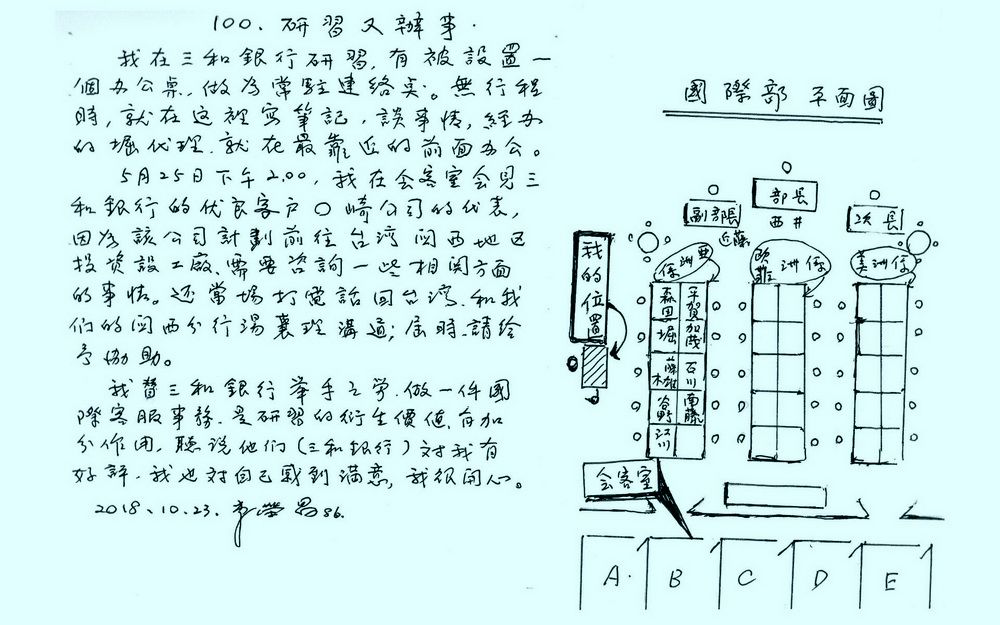 100. 研習又辦事.
我在三和銀行研習,有被設置一
個办公桌,做為常駐連絡矣。無行程
時,就在这裡寫筆記,談事情,經办
的堀代理,就在最靠近的前面办公。
5月25日下午2.00,我在会客室会見三
和銀行的优良客户〇崎公司的代表,
因為該公司計劃前往台湾関西地区
投資設工廠、需要咨詢一些相関方面
的事情。还當場打電話回台湾,和我
們的関西分行湯襄理溝通;屆時,請給
予協助。
我替三和銀行举手之劳,做一件國
際客服事務,是研習的衍生價值,有加
分作用,聽说他們(三和銀行)对我有
好評,我也对自己感到满意,我很開心。
2018、10.23.
86.
國際部平面圖
部長
西井
副部長
近藤
次長
亞洲係
歐洲係
美洲係
我的位置
森田
平賀
堀
加茂
石川
谷野
南藤
江川
会客室
A.
B
C
D
E